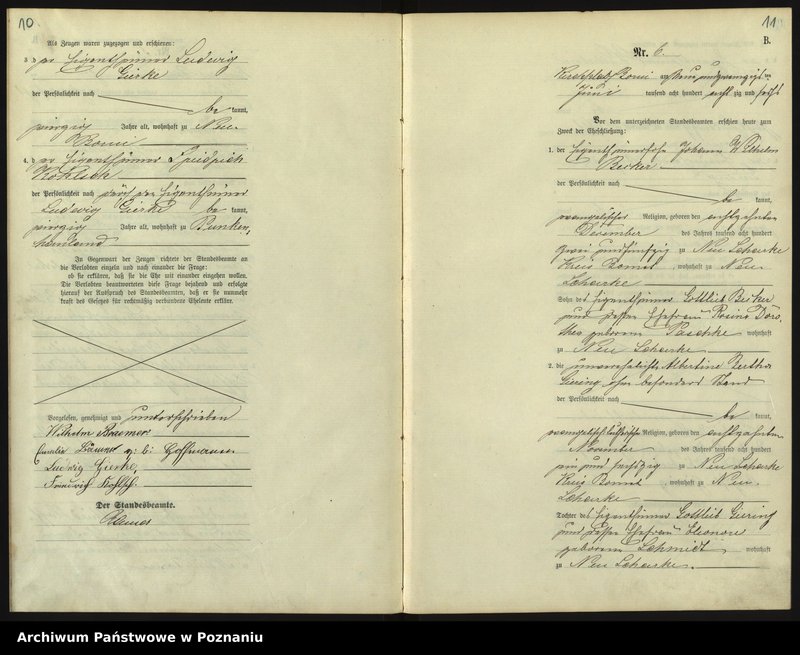 10
Als Zeugen waren zugezogen und erschienen:
3. der Eigenthümer Ludwig
Gierke
der Persönlichkeit nach
be kannt,
Jahre alt, wohnhaft zu Neu-
Bomu
4. der Eigenthümer Friedrich
Kohlsch
der Persönlichkeit nach durch den Eigenthümer
Ludwig Gierke be kannt,
Jahre alt, wohnhaft zu
In Gegenwart der Zeugen richtete der Standesbeamte an
die Verlobten einzeln und nach einander die Frage:
ob sie erklären, daß sie die Ehe mit einander eingehen wollen.
Die Verlobten beantworteten diese Frage bejahend und erfolgte
hierauf der Ausspruch des Standesbeamten, daß er sie nunmehr
kraft des Gesetzes für rechtmäßig verbundene Eheleute erkläre.
Vorgelesen, genehmigt und unterschrieben
Wilhelm Braemer
Ludwig Gierke,
Friedrich Kohlsch.
Der Standesbeamte.
11
B.
Nr. 6.
Kirchplatz Bomu am neun und zwanzigsten
Juni tausend acht hundert acht zig und sechs
Vor dem unterzeichneten Standesbeamten erschien heute zum
Zweck der Eheschließung:
1. der Eigenthümersohn Johann Wilhelm
Becker
der Persönlichkeit nach
be kannt,
evangelischer Religion, geboren den achtzehnten
December des Jahres tausend acht hundert
zwei und fünfzig zu Neu Scharke
Kreis Bomst, wohnhaft zu Neu-
Scharke
Sohn des Eigenthümer Gottlieb Becker
und dessen Ehefrau Rosina Doro-
thea geborene Paschke wohnhaft
zu Neu Scharke
2. die unverehelichte Albertine Bertha
Giering, ohne besonderen Stand
der Persönlichkeit nach
be kannt,
evangelisch lutherischer Religion, geboren den achtzehnten
November des Jahres tausend acht hundert
ein und sechszig zu Neu Scharke
Kreis Bomst, wohnhaft zu Neu-
Scharke
Tochter des Eigenthümer Gottlieb Giering
und dessen Ehefrau Eleonore
geborene Schmidt wohnhaft
zu Neu Scharke.
Archiwum Państwowe w Poznaniu